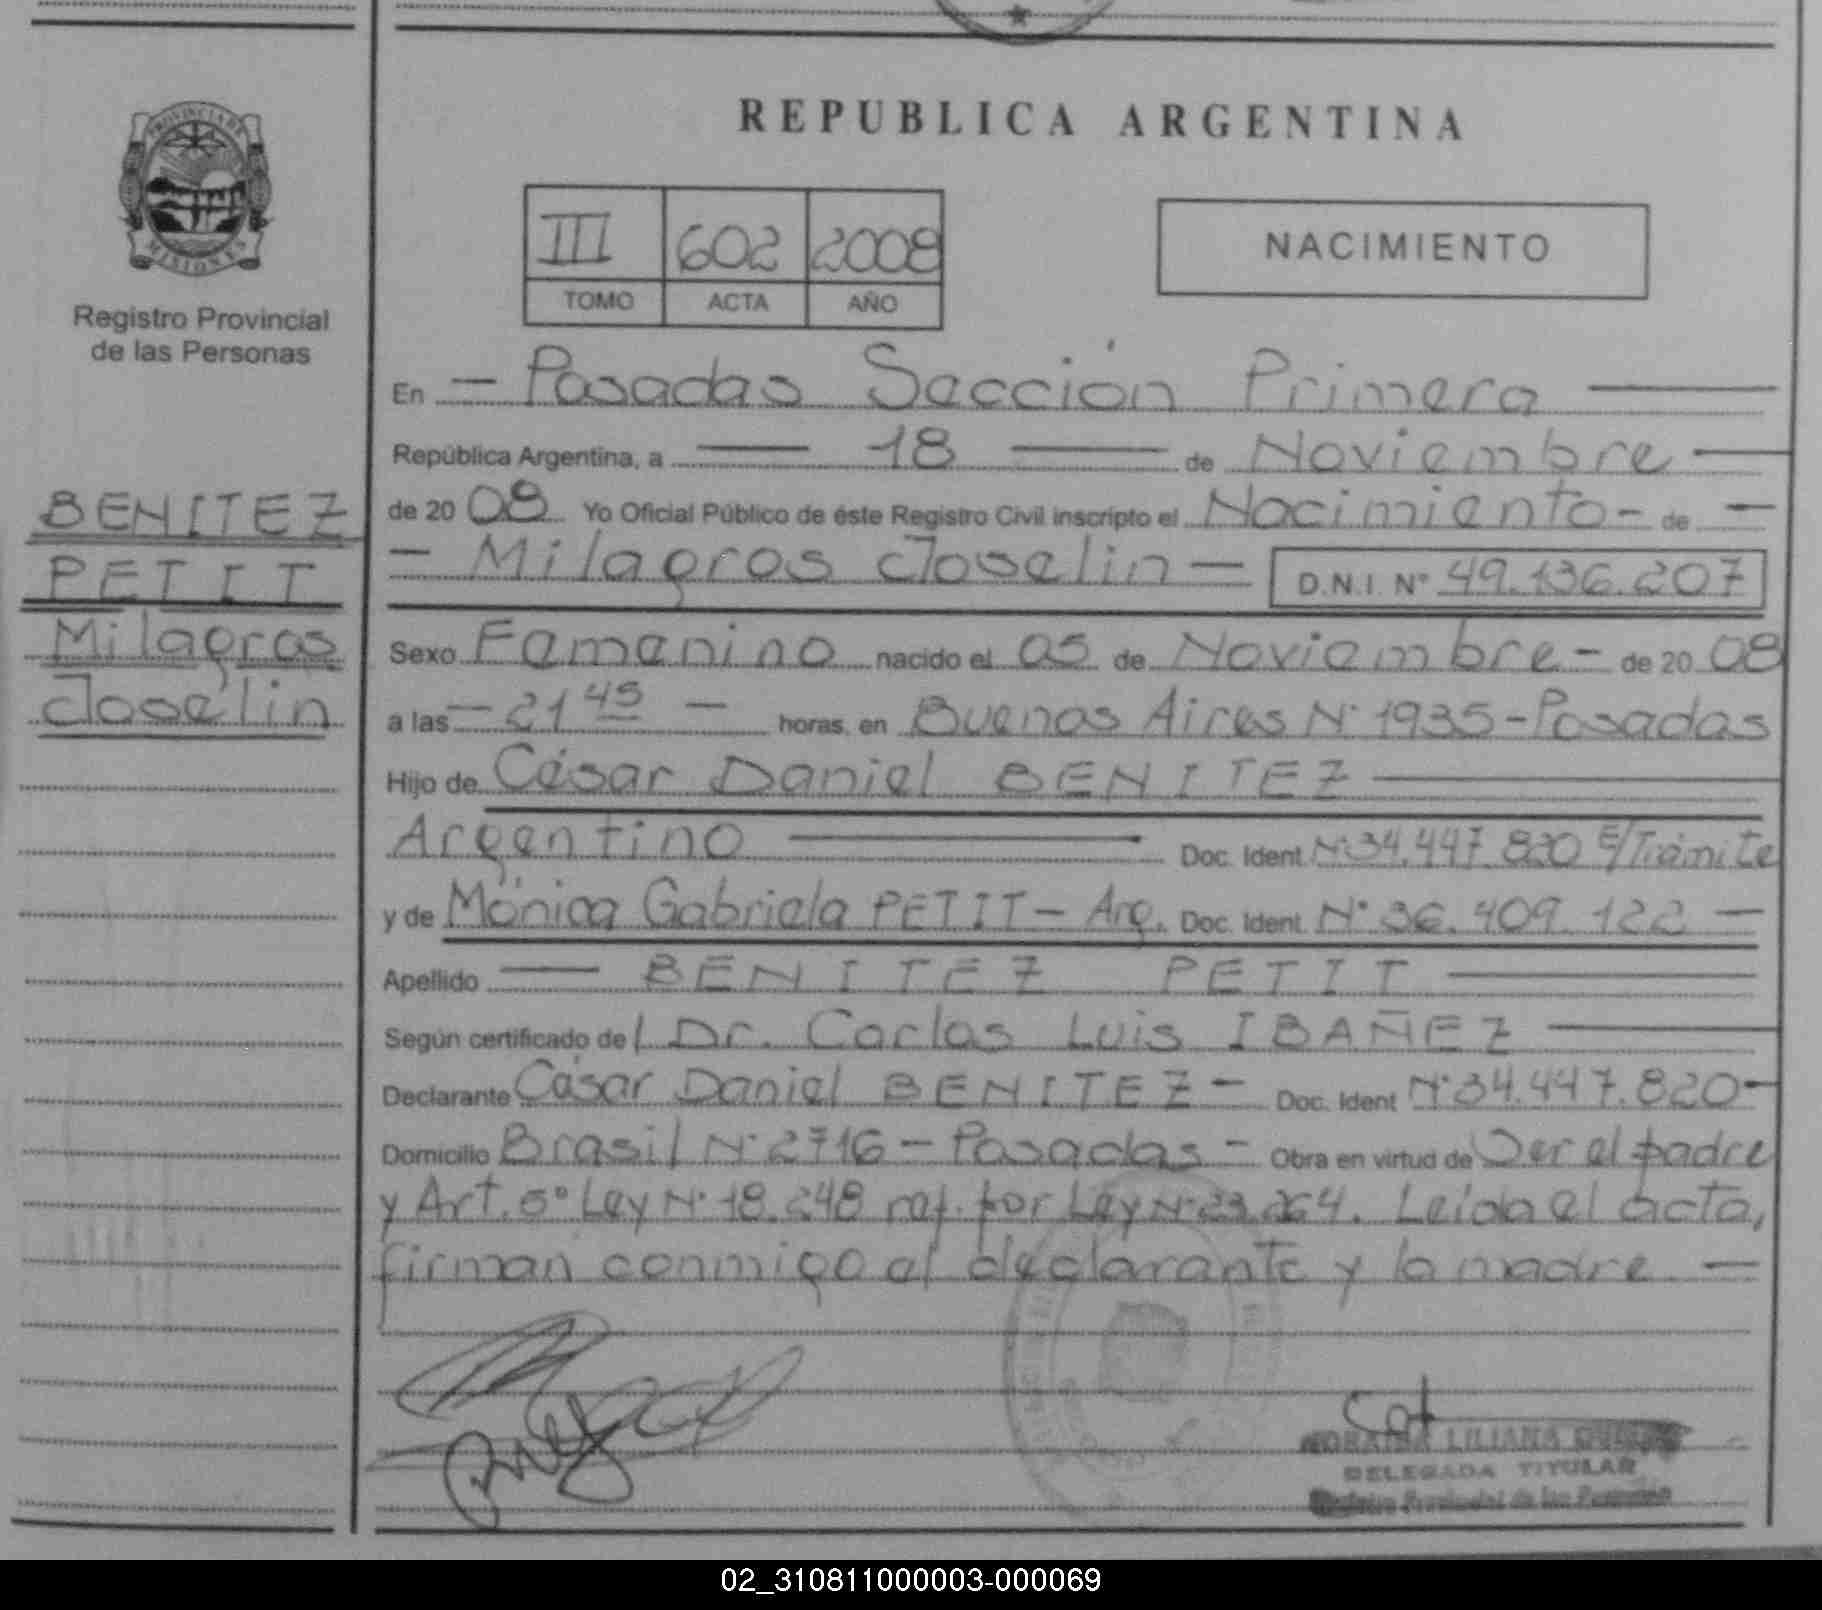 PROVINCIA DE
MISIONES
Registro Provincial
de las Personas
BENITEZ
PETIT
Milagros
Joselin
REPUBLICA ARGENTINA
III 602 2008
TOMO ACTA AÑO
NACIMIENTO
En — Posadas Sección Primera —
República Argentina, a — 18 — de Noviembre —
de 2008 Yo Oficial Público de éste Registro Civil inscripto el Nacimiento - de —
— Milagros Joselin — D.N.I. Nº 49.136.207
Sexo Femenino nacido el 05 de Noviembre - de 2008
a las — 21 45 — horas, en Buenos Aires Nº 1935 - Posadas
Hijo de César Daniel BENITEZ —
Argentino — Doc. Ident. Nº 34.447.820 E/Trámite
y de Mónica Gabriela PETIT — Arg. Doc. Ident. Nº 36.409.122 —
Apellido — BENITEZ PETIT —
Según certificado del Dr. Carlos Luis IBAÑEZ —
Declarante César Daniel BENITEZ — Doc. Ident Nº 34.447.820 —
Domicilio Brasil Nº 2716 - Posadas - Obra en virtud de Ser el padre
y Art. 5º Ley Nº 18.248 ref. por Ley Nº 23.264. Leída el acta,
firman conmigo el declarante y la madre. —
LILIANA
DELEGADA TITULAR
Registro Provincial de las Personas
02_310811000003-000069